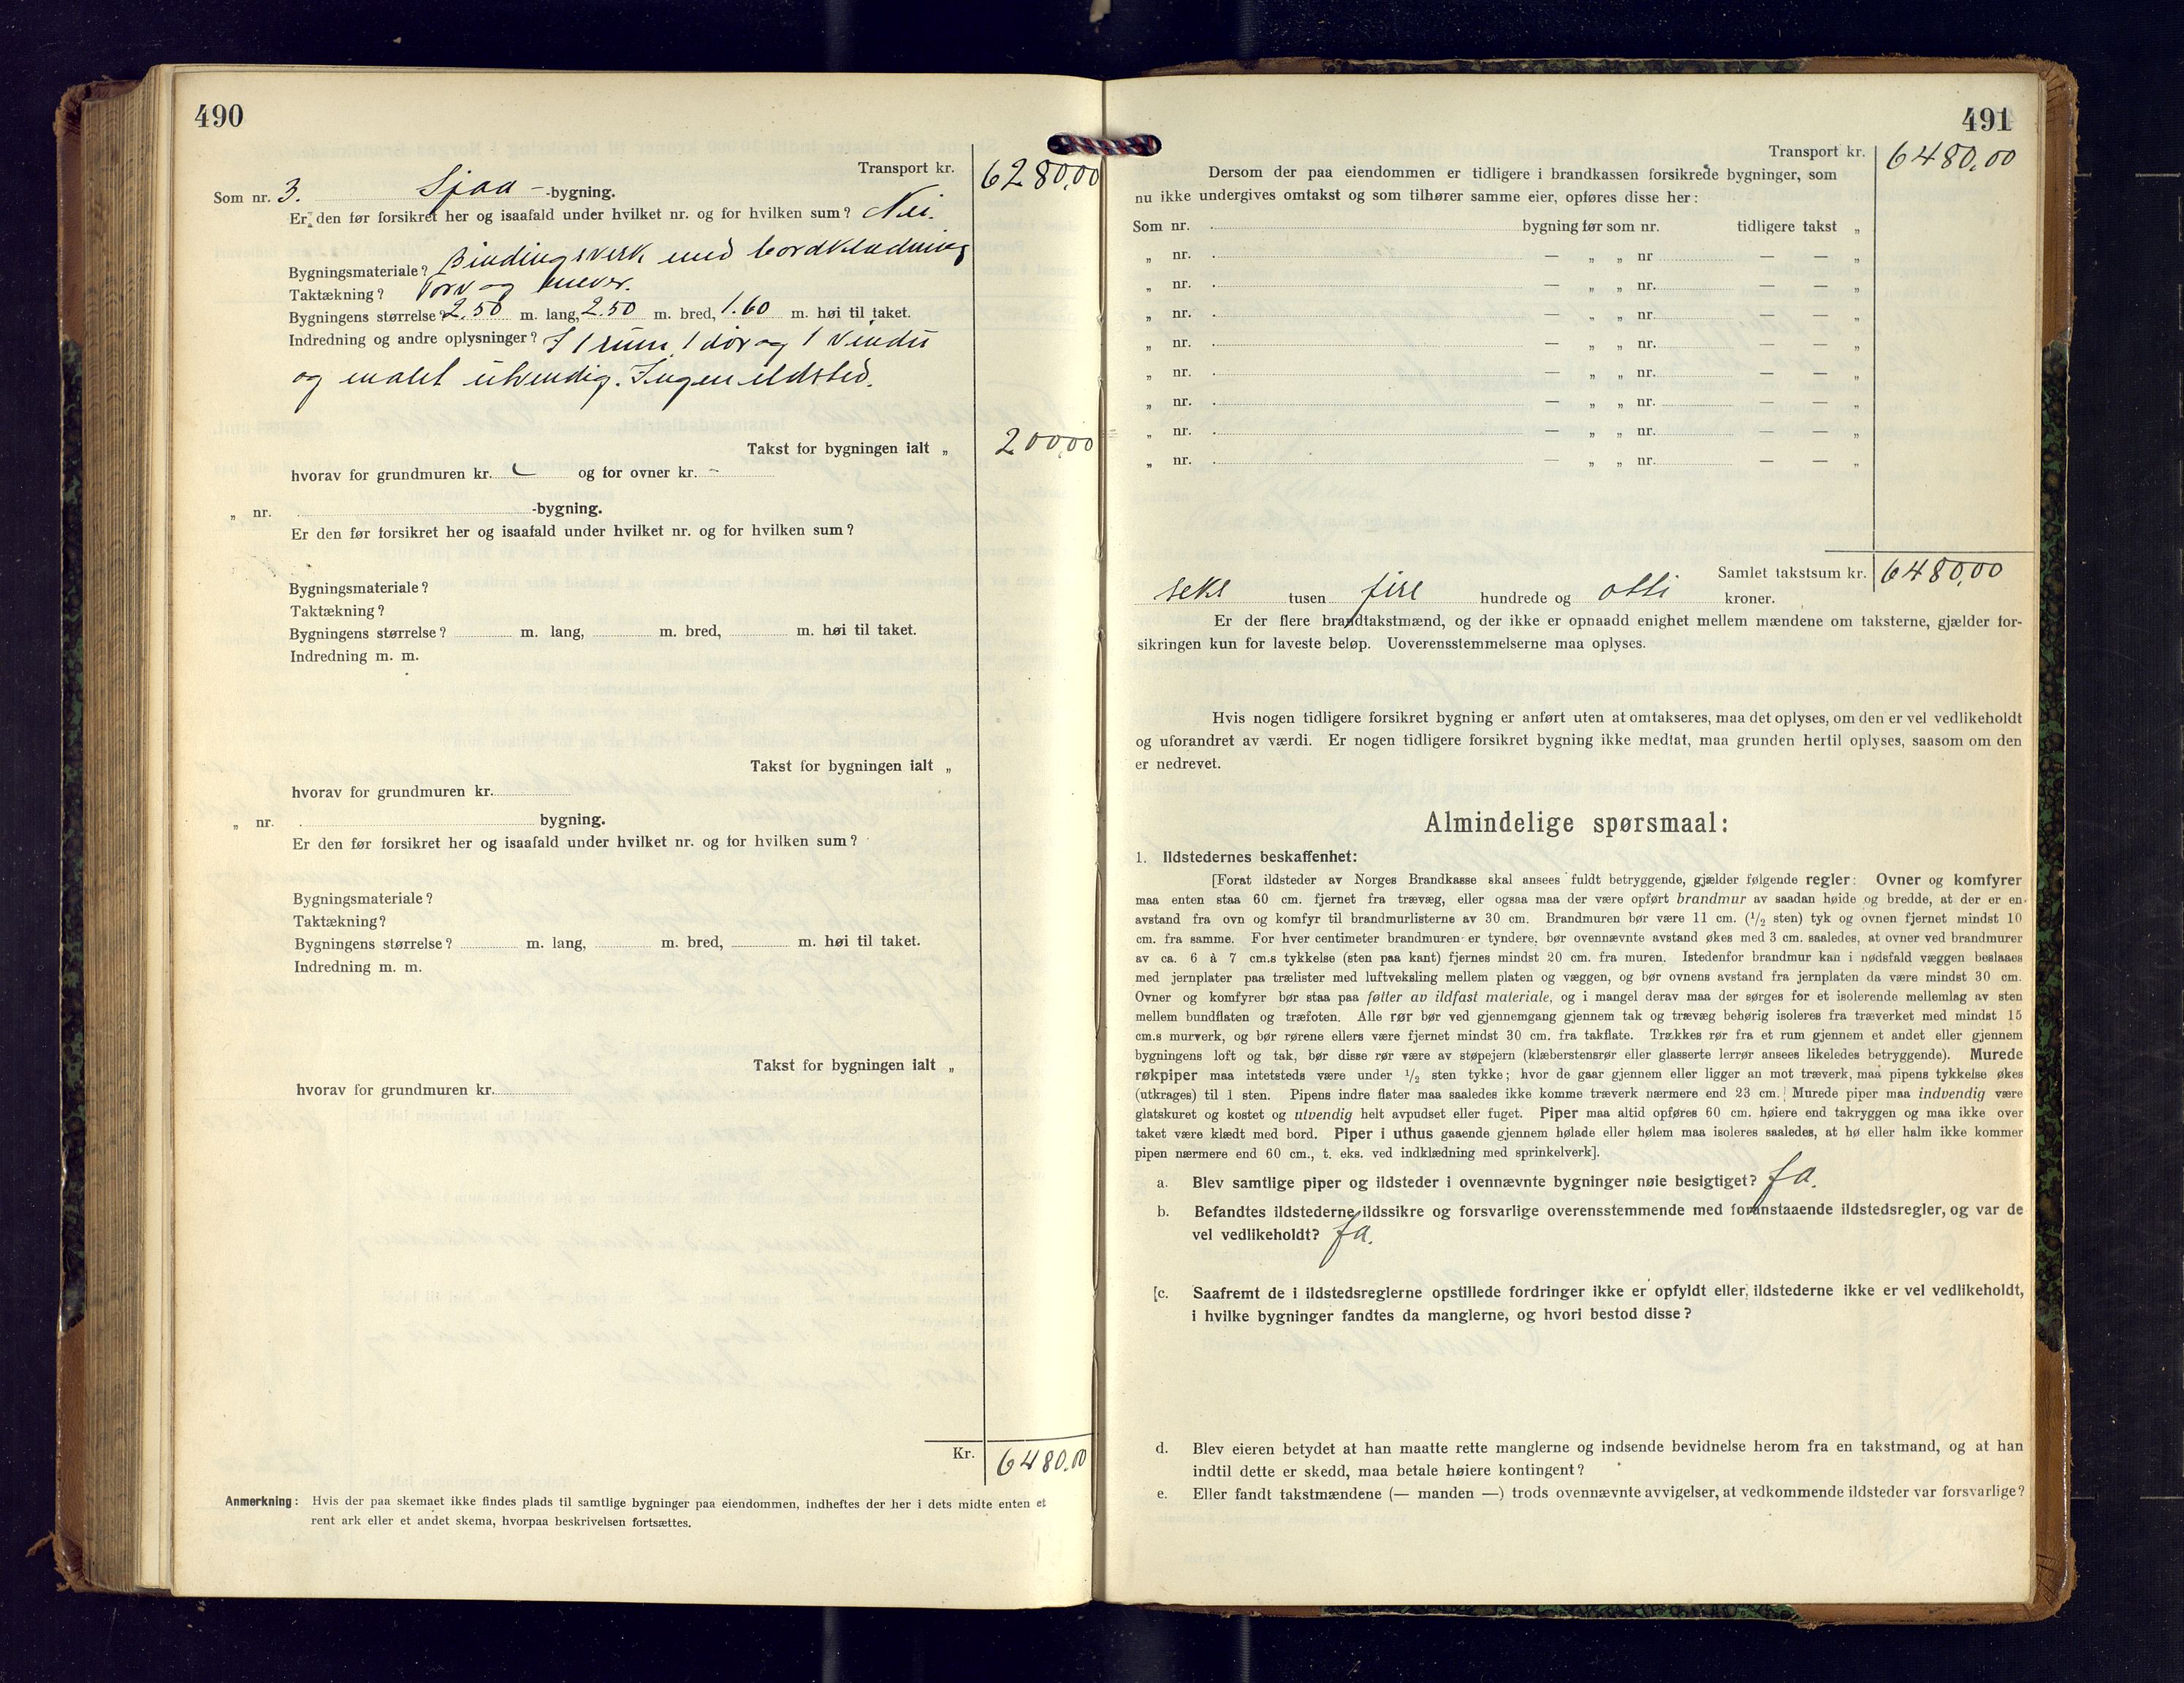 490
Transport kr. 6280,00
Som nr. 3. Sjaa -bygning.
Er den før forsikret her og isaafald under hvilket nr. og for hvilken sum? Nei.
Bygningsmateriale? Bindingsverk med bordklædning
Taktækning? Torv og never.
Bygningens størrelse? 2.50 m. lang, 2.50 m. bred, 1.60 m. høi til taket.
Indredning og andre oplysninger? I 1 rum 1 dør og 1 vindu
og malet utvendig. Ingen ildsted.
Takst for bygningen ialt „ 200,00
hvorav for grundmuren kr. og for ovner kr. -
„ nr. -bygning.
Er den før forsikret her og isaafald under hvilket nr. og for hvilken sum?
Bygningsmateriale?
Taktækning?
Bygningens størrelse? m. lang, m. bred, m. høi til taket.
Indredning m. m.
Takst for bygningen ialt „
hvorav for grundmuren kr.
„ nr. bygning.
Er den før forsikret her og isaafald under hvilket nr. og for hvilken sum?
Bygningsmateriale?
Taktækning?
Bygningens størrelse? m. lang, m. bred, m. høi til taket.
Indredning m. m.
Takst for bygningen ialt „
hvorav for grundmuren kr.
Kr. 6480.00
Anmerkning: Hvis der paa skemaet ikke findes plads til samtlige bygninger paa eiendommen, indheftes der her i dets midte enten et
rent ark eller et andet skema, hvorpaa beskrivelsen fortsættes.
491
Transport kr. 6480,00
Dersom der paa eiendommen er tidligere i brandkassen forsikrede bygninger, som
nu ikke undergives omtakst og som tilhører samme eier, opføres disse her:
Som nr. bygning før som nr. tidligere takst „
„ nr. — „ „ nr — — „
„ nr. — „ „ nr. — — „
„ nr. — „ „ nr. — — „
„ nr. — „ „ nr. — — „
„ nr. — „ „ nr. — — „
„ nr. — „ „ nr. — — „
„ nr. — „ „ nr. — — „
„ nr. — „ „ nr. — — „
Samlet takstsum kr. 6480,00
seks tusen fire hundrede og otti kroner.
Er der flere brandtakstmænd, og der ikke er opnaadd enighet mellem mændene om taksterne, gjælder for-
sikringen kun for laveste beløp. Uoverensstemmelserne maa oplyses.
Hvis nogen tidligere forsikret bygning er anført uten at omtakseres, maa det oplyses, om den er vel vedlikeholdt
og uforandret av værdi. Er nogen tidligere forsikret bygning ikke medtat, maa grunden hertil oplyses, saasom om den
er nedrevet.
Almindelige spørsmaal:
1. Ildstedernes beskaffenhet:
[Forat ildsteder av Norges Brandkasse skal ansees fuldt betryggende, gjælder følgende regler: Ovner og komfyrer
maa enten staa 60 cm. fjernet fra trævæg, eller ogsaa maa der være opført brandmur av saadan høide og bredde, at der er en
avstand fra ovn og komfyr til brandmurlisterne av 30 cm. Brandmuren bør være 11 cm. (1/2 sten) tyk og ovnen fjernet mindst 10
cm. fra samme. For hver centimeter brandmuren er tyndere, bør ovennævnte avstand økes med 3 cm. saaledes, at ovner ved brandmurer
av ca. 6 à 7 cm.s tykkelse (sten paa kant) fjernes mindst 20 cm. fra muren. Istedenfor brandmur kan i nødsfald væggen beslaaes
med jernplater paa trælister med luftveksling mellem platen og væggen, og bør ovnens avstand fra jernplaten da være mindst 30 cm.
Ovner og komfyrer bør staa paa føtter av ildfast materiale, og i mangel derav maa der sørges for et isolerende mellemlag av sten
mellem bundflaten og træfoten. Alle rør bør ved gjennemgang gjennem tak og trævæg behørig isoleres fra træverket med mindst 15
cm.s murverk, og bør rørene ellers være fjernet mindst 30 cm. fra takflate. Trækkes rør fra et rum gjennem et andet eller gjennem
bygningens loft og tak, bør disse rør være av støpejern (klæberstensrør eller glasserte lerrør ansees likeledes betryggende). Murede
røkpiper maa intetsteds være under 1/2 sten tykke; hvor de gaar gjennem eller ligger an mot træverk, maa pipens tykkelse økes
(utkrages) til 1 sten. Pipens indre flater maa saaledes ikke komme træverk nærmere end 23 cm. Murede piper maa indvendig være
glatskuret og kostet og utvendig helt avpudset eller fuget. Piper maa altid opføres 60 cm. høiere end takryggen og maa ikke over
taket være klædt med bord. Piper i uthus gaaende gjennem hølade eller hølem maa isoleres saaledes, at hø eller halm ikke kommer
pipen nærmere end 60 cm., t. eks. ved indklædning med sprinkelverk].
a. Blev samtlige piper og ildsteder i ovennævnte bygninger nøie besigtiget? Ja.
b. Befandtes ildstederne ildssikre og forsvarlige overensstemmende med foranstaaende ildstedsregler, og var de
vel vedlikeholdt? Ja.
[c. Saafremt de i ildstedsreglerne opstillede fordringer ikke er opfyldt eller ildstederne ikke er vel vedlikeholdt,
i hvilke bygninger fandtes da manglerne, og hvori bestod disse?
d. Blev eieren betydet at han maatte rette manglerne og indsende bevidnelse herom fra en takstmand, og at han
indtil dette er skedd, maa betale høiere kontingent?
e. Eller fandt takstmændene (— manden —) trods ovennævnte avvigelser, at vedkommende ildsteder var forsvarlige?